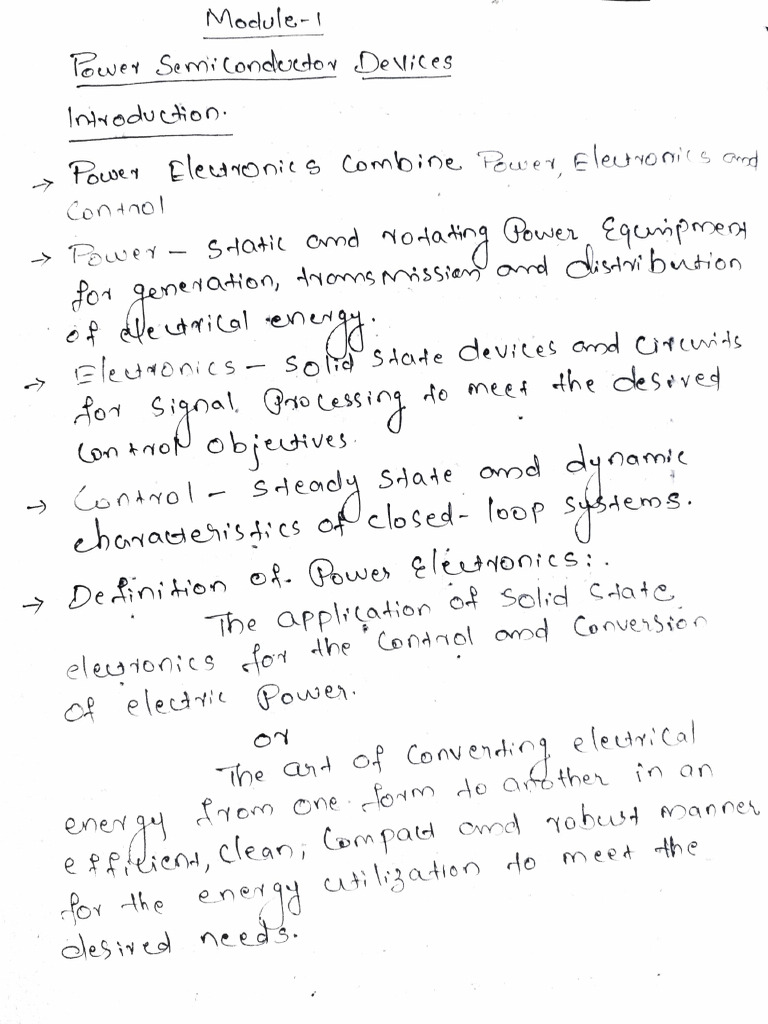 Module-1
Power Semiconductor Devices
Introduction.
→ Power Electronics Combine Power, Electronics and
Control
→ Power - Static and rotating Power Equipment
for generation, transmission and distribution
of electrical energy.
→ Electronics - Solid State devices and Circuits
for Signal Processing to meet the desired
Control objectives.
→ Control - Steady State and dynamic
characteristics of closed-loop systems.
→ Definition of Power Electronics:.
The application of Solid State
electronics for the Control and Conversion
of electric Power.
or
The art of Converting electrical
energy from one form to another in an
efficient, clean, Compact and robust manner
for the energy utilization to meet the
desired needs.